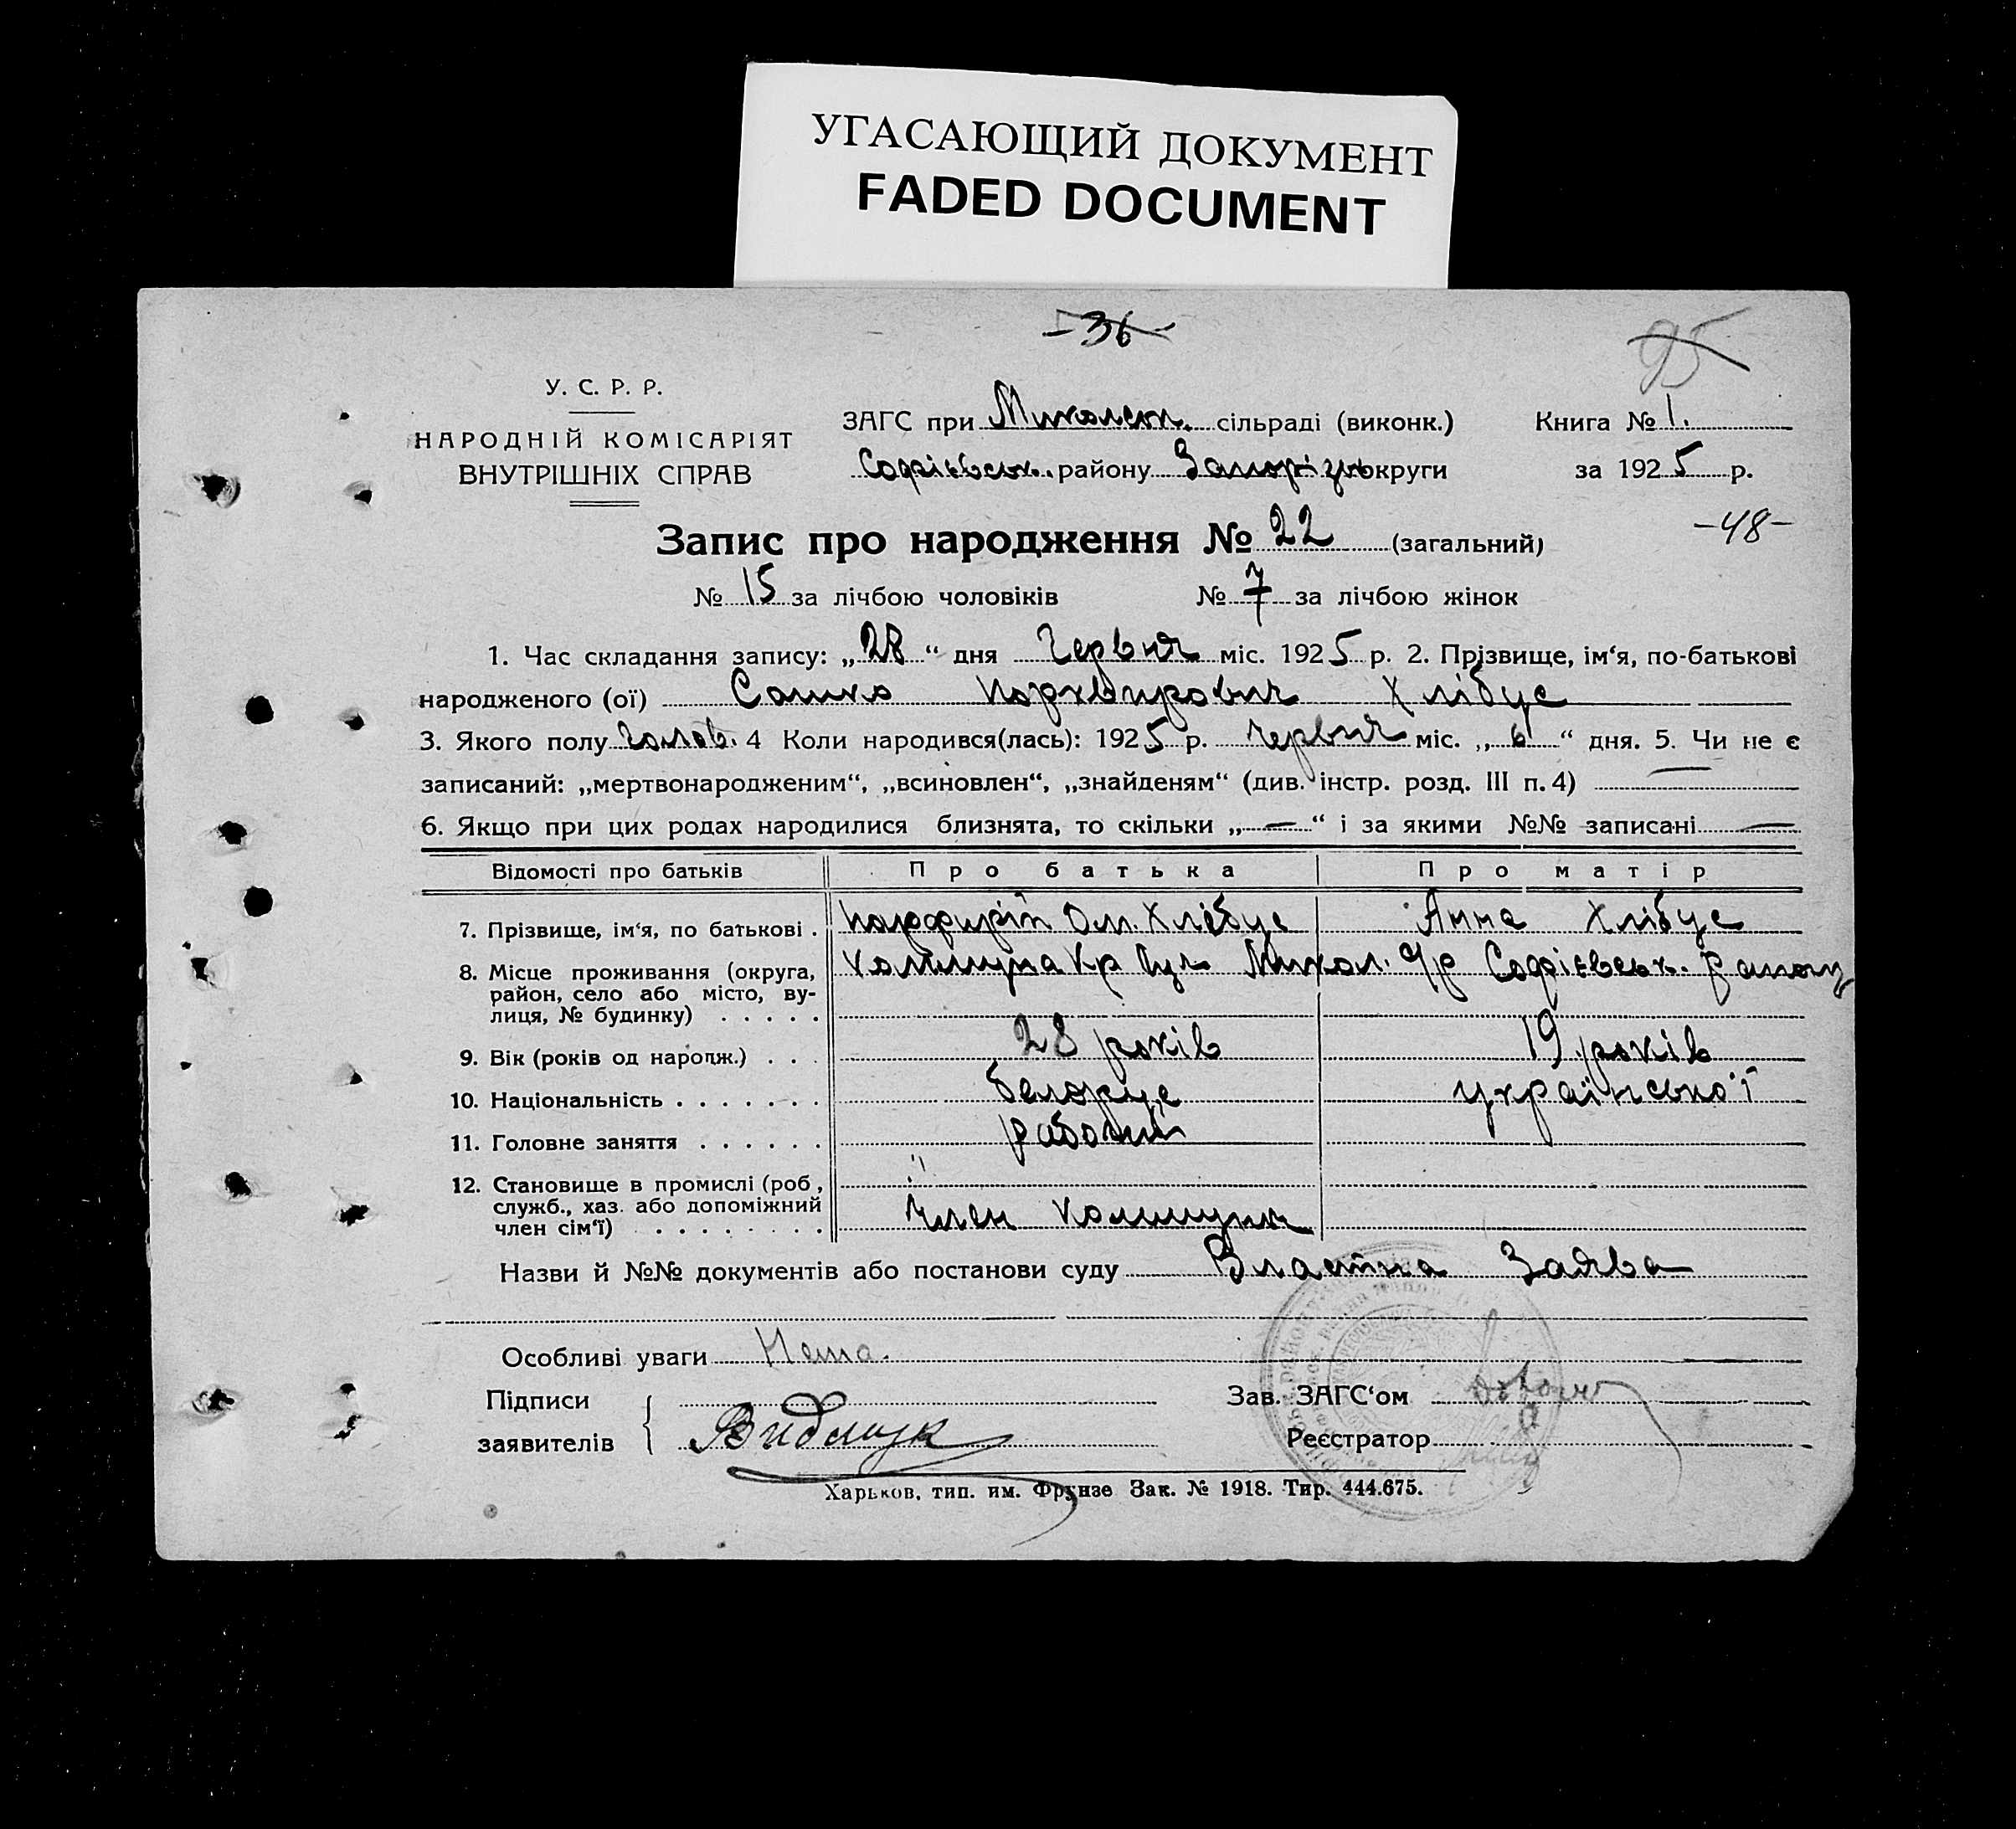 УГАСАЮЩИЙ ДОКУМЕНТ
FADED DOCUMENT
-36-
95
У. С. Р. Р.
НАРОДНІЙ КОМІСАРІЯТ
ВНУТРІШНІХ СПРАВ
ЗАГС при Миколськ. сільраді (виконк.)
Софієвськ. району Запоріз округи
Книга № 1.
за 1925 р.
-48-
Запис про народження № 22 (загальний)
№ 15 за лічбою чоловіків № 7 за лічбою жінок
1. Час складання запису: „28“ дня Червня міс. 1925 р. 2. Прізвище, ім‘я, по-батькові
народженого (ої) Сашко Хлібус
3. Якого полу чолов. 4 Коли народився(лась): 1925 р. червня міс. „6“ дня. 5. Чи не є
записаний: „мертвонародженим“, „всиновлен“, „знайденям“ (див. інстр. розд. III п. 4) —
6. Якщо при цих родах народилися близнята, то скільки „—“ і за якими №№ записані —
Відомості про батьків Про батька Про матір
7. Прізвище, ім‘я, по батькові . Порфирій Ом. Хлібус Анна Хлібус
8. Місце проживання (округа, район, село або місто, вулиця, № будинку) . . . . . Коммуна Кр Микол. с/р Софієвськ. району
9. Вік (років од народж.) . . . 28 років 19 років
10. Національність . . . . . . . української
11. Головне заняття . . . . . . рабочий
12. Становище в промислі (роб., служб., хаз. або допоміжний член сім‘ї) . . . . . . . . " член коммуни
Назви й №№ документів або постанови суду Властна Заява
Особливі уваги Нема.
Підписи
заявителів
Видмук
Зав. ЗАГС‘ом
Реєстратор
Харьков, тип. им. Фрунзе Зак. № 1918. Тир. 444.675.